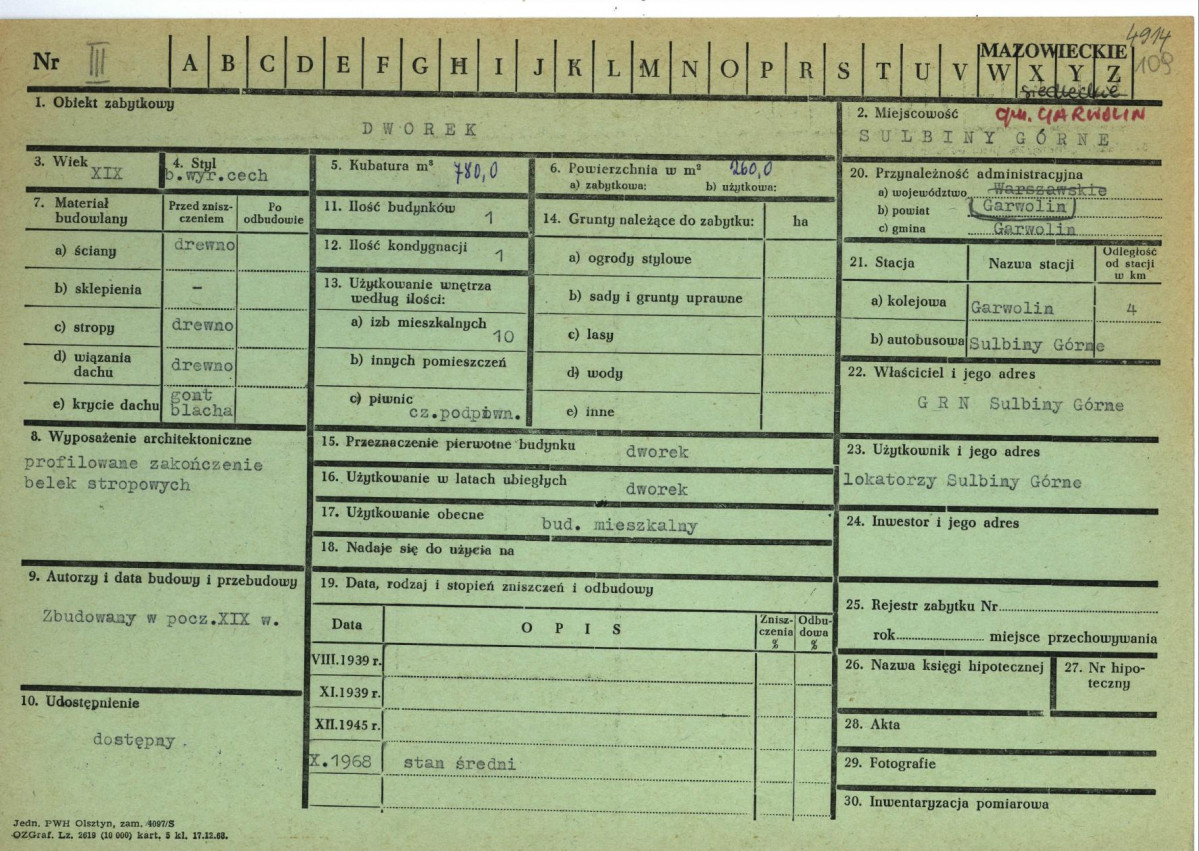 4914
Nr III A B C D E F G H I J K L M N O P R S T U V W X Y Z
MAZOWIECKIE
109
siedleckie
1. Obiekt zabytkowy
DWOREK
2. Miejscowość gm. GARWOLIN
SULBINY GÓRNE
3. Wiek
XIX
4. Styl
b.wyr.cech
5. Kubatura m³ 780,0
6. Powierzchnia w m² 260,0
a) zabytkowa: b) użytkowa:
20. Przynależność administracyjna
a) województwo Warszawskie
b) powiat Garwolin
c) gmina Garwolin
7. Materiał budowlany
Przed znisz-
czeniem
Po
odbudowie
a) ściany drewno
b) sklepienia –
c) stropy drewno
d) wiązania
dachu drewno
e) krycie dachu gont
blacha
11. Ilość budynków 1
12. Ilość kondygnacji 1
13. Użytkowanie wnętrza
według ilości:
a) izb mieszkalnych 10
b) innych pomieszczeń
c) piwnic
cz.podpiwn.
14. Grunty należące do zabytku: ha
a) ogrody stylowe
b) sady i grunty uprawne
c) lasy
d) wody
e) inne
21. Stacja Nazwa stacji
Odległość
od stacji
w km
a) kolejowa Garwolin 4
b) autobusowa Sulbiny Górne
22. Właściciel i jego adres
G R N Sulbiny Górne
8. Wyposażenie architektoniczne
profilowane zakończenie
belek stropowych
15. Przeznaczenie pierwotne budynku dworek
16. Użytkowanie w latach ubiegłych dworek
17. Użytkowanie obecne bud. mieszkalny
18. Nadaje się do użycia na
23. Użytkownik i jego adres
lokatorzy Sulbiny Górne
24. Inwestor i jego adres
9. Autorzy i data budowy i przebudowy
Zbudowany w pocz.XIX w.
19. Data, rodzaj i stopień zniszczeń i odbudowy
Data OPIS
Znisz-
czenia
%
Odbu-
dowa
%
VIII.1939 r.
XI.1939 r.
XII.1945 r.
X.1968 stan średni
25. Rejestr zabytku Nr
rok miejsce przechowywania
26. Nazwa księgi hipotecznej
27. Nr hipo-
teczny
10. Udostępnienie
dostępny.
28. Akta
29. Fotografie
30. Inwentaryzacja pomiarowa
Jedn. PWH Olsztyn, zam. 4097/S
OZGraf. Lz. 2619 (10 000) kart. 5 kl. 17.12.68.